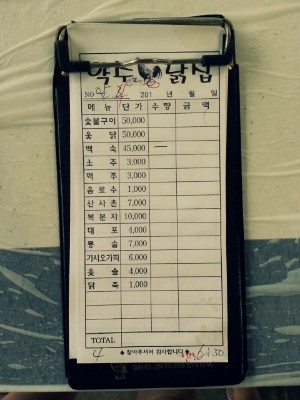 닭집
NO 201 년 월 일
메뉴 단가 수량 금액
숯불구이 50,000
옻닭 50,000
백숙 45,000 —
소주 3,000
맥주 3,000
음료수 1,000
산사춘 7,000
복분자 10,000
대포 4,000
통술 7,000
가시오가피 6,000
옻술 4,000
닭죽 1,000
TOTAL
◆ 찾아주셔서 감사합니다 ◆
4 6:30